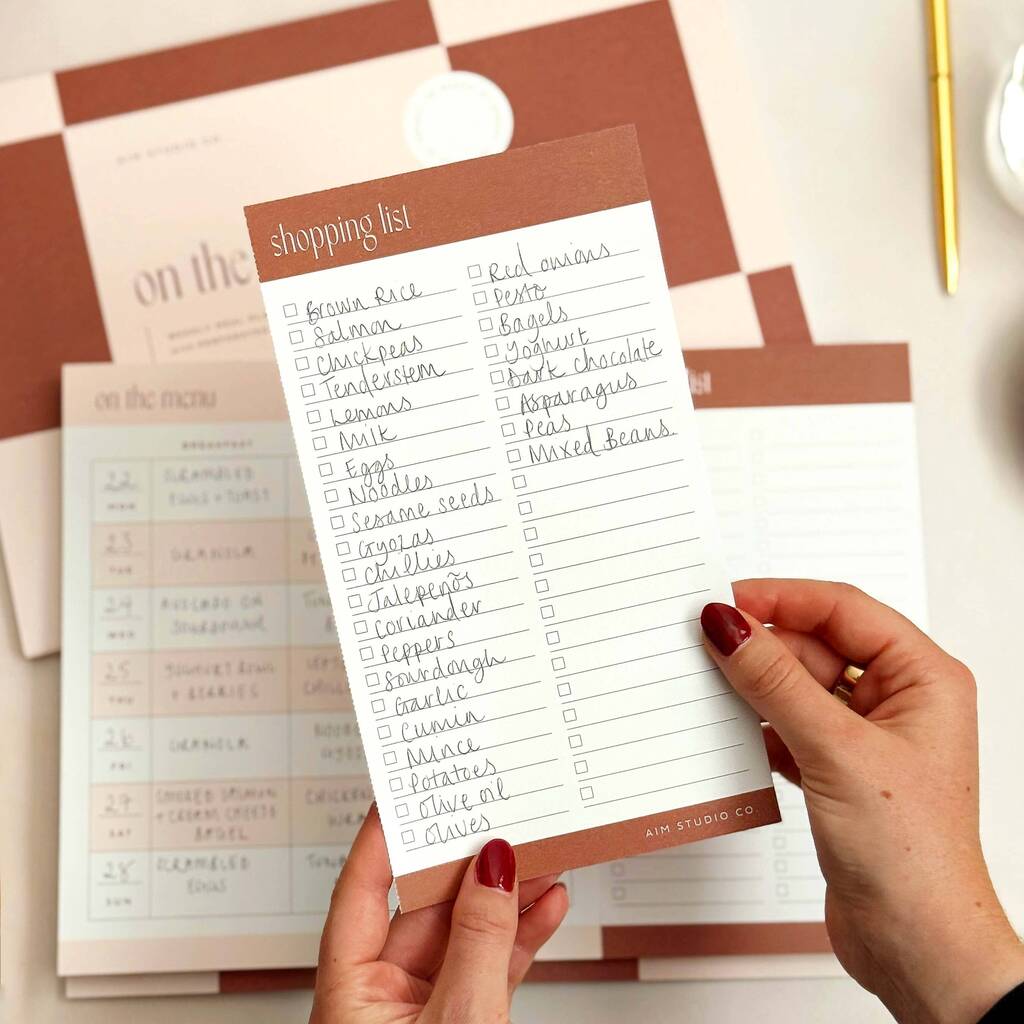 AIM STUDIO CO.
on the
shopping list
Brown Rice
Salmon
Chickpeas
Tenderstem
Lemons
Milk
Eggs
Noodles
Sesame seeds
Gyozas
Chillies
Jalepenõs
Coriander
Peppers
Sourdough
Garlic
Cumin
Mince
Potatoes
Olive oil
Olives
Red onions
Pesto
Bagels
Yoghurt
Dark chocolate
Asparagus
Peas
Mixed Beans.
AIM STUDIO CO.
on the menu
BREAKFAST
22 SCRAMBLED
MON EGGS + TOAST
23 GRANOLA
TUE
24 AVOCADO ON
WED SOURDOUGH
25 YOGHURT BOWL
THU + BERRIES
26 GRANOLA
FRI
27 SMOKED SALMON
SAT + CREAM CHEESE
BAGEL
28 SCRAMBLED
SUN EGGS
list